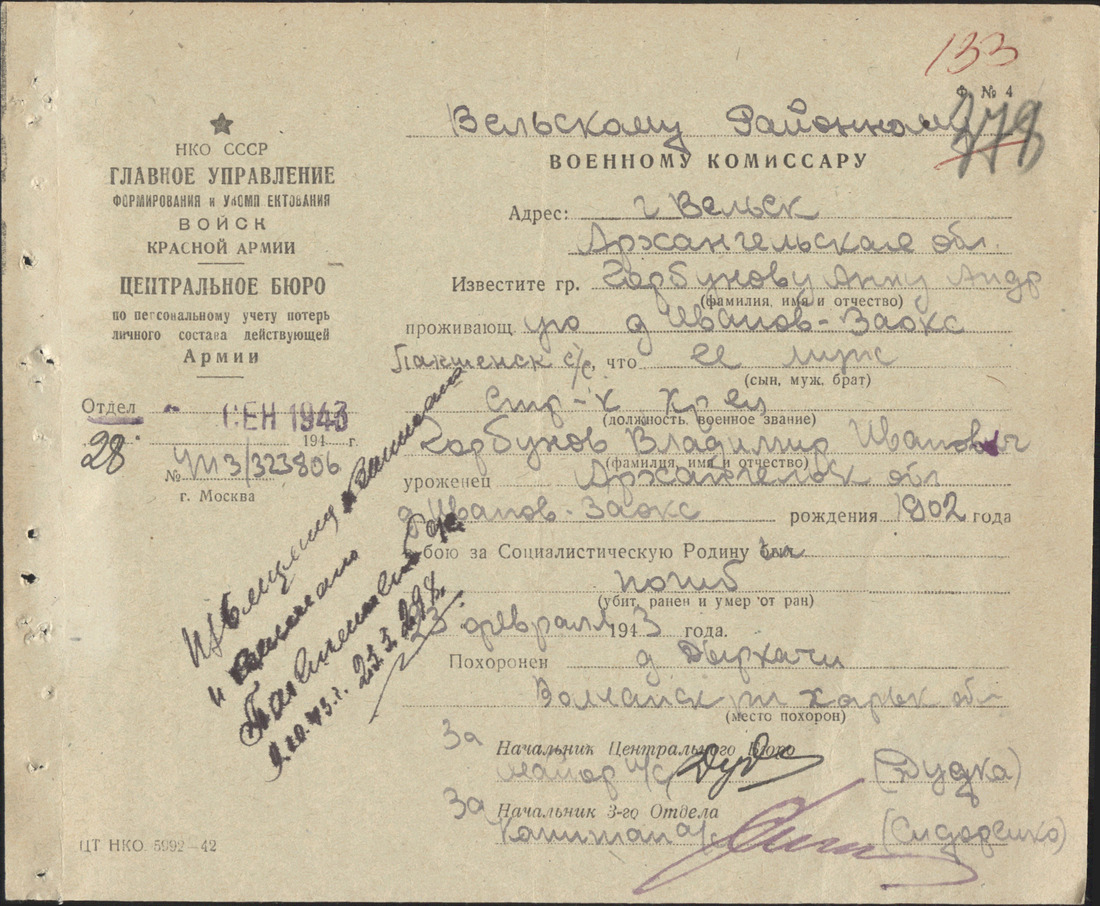 133
Ф. № 4
378
Вельскому Районному
ВОЕННОМУ КОМИССАРУ
НКО СССР
ГЛАВНОЕ УПРАВЛЕНИЕ
ФОРМИРОВАНИЯ и УКОМП ЕКТОВАНИЯ
ВОЙСК
КРАСНОЙ АРМИИ
ЦЕНТРАЛЬНОЕ БЮРО
по персональному учету потерь
личного состава действующей
Армии
Отдел
СЕН 1943
194 г.
28
№ 4п13/323806
г. Москва
Адрес: г Вельск
Архангельская обл.
Известите гр. Горбунову Анну Андр
(фамилия, имя и отчество)
проживающ. ую д Иванов-Заокс
Пакшенск с/с, что ее муж
(сын, муж, брат)
Стр-к Кр-ец
(должность, военное звание)
Горбунов Владимир Иванович
(фамилия, имя и отчество)
уроженец Архангельск обл
д Иванов-Заокс рождения 1902 года
бою за Социалистическую Родину был
погиб
(убит, ранен и умер от ран)
23 февраля 1943 года.
Похоронен д Дырхачи
Волчанск харьк обл
(место похорон)
За Начальник Центрального Бюро
Майор и/с (Дудка)
За Начальник 3-го Отдела
Капитан а/с (Сидоренко)
Извещение
и
ЦТ НКО. 5992—42